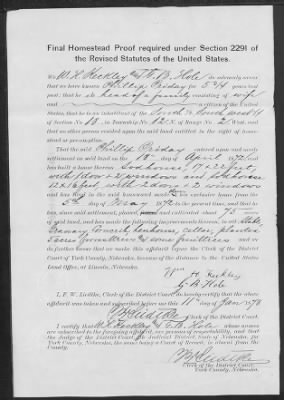 Final Homestead Proof required under Section 2291 of
the Revised Statutes of the United States.
We W. H. Keckley & G. B. Hole do solemnly swear
that we have known Phillip Friday for 5 3/4 years last
past; that he is head of a family consisting of wife
and a citizen of the United
States; that he is an inhabitant of the South 1/2 South west 1/4
of Section No. 18 in Township No. 12 of Range No. 2 West and that
no other person resided upon the said land entitled to the right of homestead or
preemption.
That the said Phillip Friday entered upon and made
settlement on said land on the 15 day of April 1872 and
has built a house thereon
with 1 door & 2 windows and
12 x 16 feet, with 2 doors & 2 windows
and has lived in the said house and made it his exclusive home from the
5th day of May 1872 to the present time, and that he
has, since said settlement, plowed and cultivated about 75 acres
of said land, and has made the following improvements thereon, to wit: stable,
Granary, corncrib, henhouse, cellar, planted
5 acres forest trees & some fruit trees and we
do further swear that we make this affidavit upon the Clerk of the District
Court of York County, Nebraska, because of the distance to the United States
Land Office, at Lincoln, Nebraska.
Wm H. Keckley
G B Hole
I, F. W. Liedtke, Clerk of the District Court, do hereby certify that the above
affidavit was taken and subscribed before me this 11th day of Jan 1878
F W Liedtke
Clerk of the District Court.
I certify that W. H. Keckley & G. B. Hole whose names
are subscribed to the foregoing affidavit, are persons of respectability, and that
the Judge of the District Court Judicial District, State of Nebraska, for
York County, Nebraska, the same being a Court of Record, is absent from the
County.
F W Liedtke
Clerk of the District Court,
York County, Nebraska.